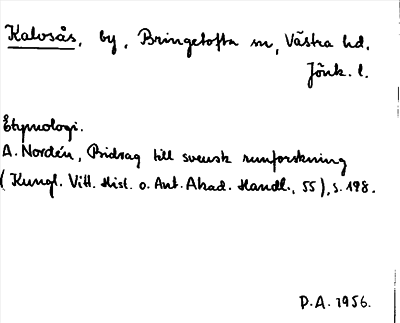 Kalvsås, by, Bringetofta sn, Västra hd.
Jönk. l.
Etymologi.
A. Nordén, Bidrag till svensk runforskning
(Kungl. Vitt. Hist. o. Ant. Akad. Handl., 55), s. 198.
P.A. 1956.